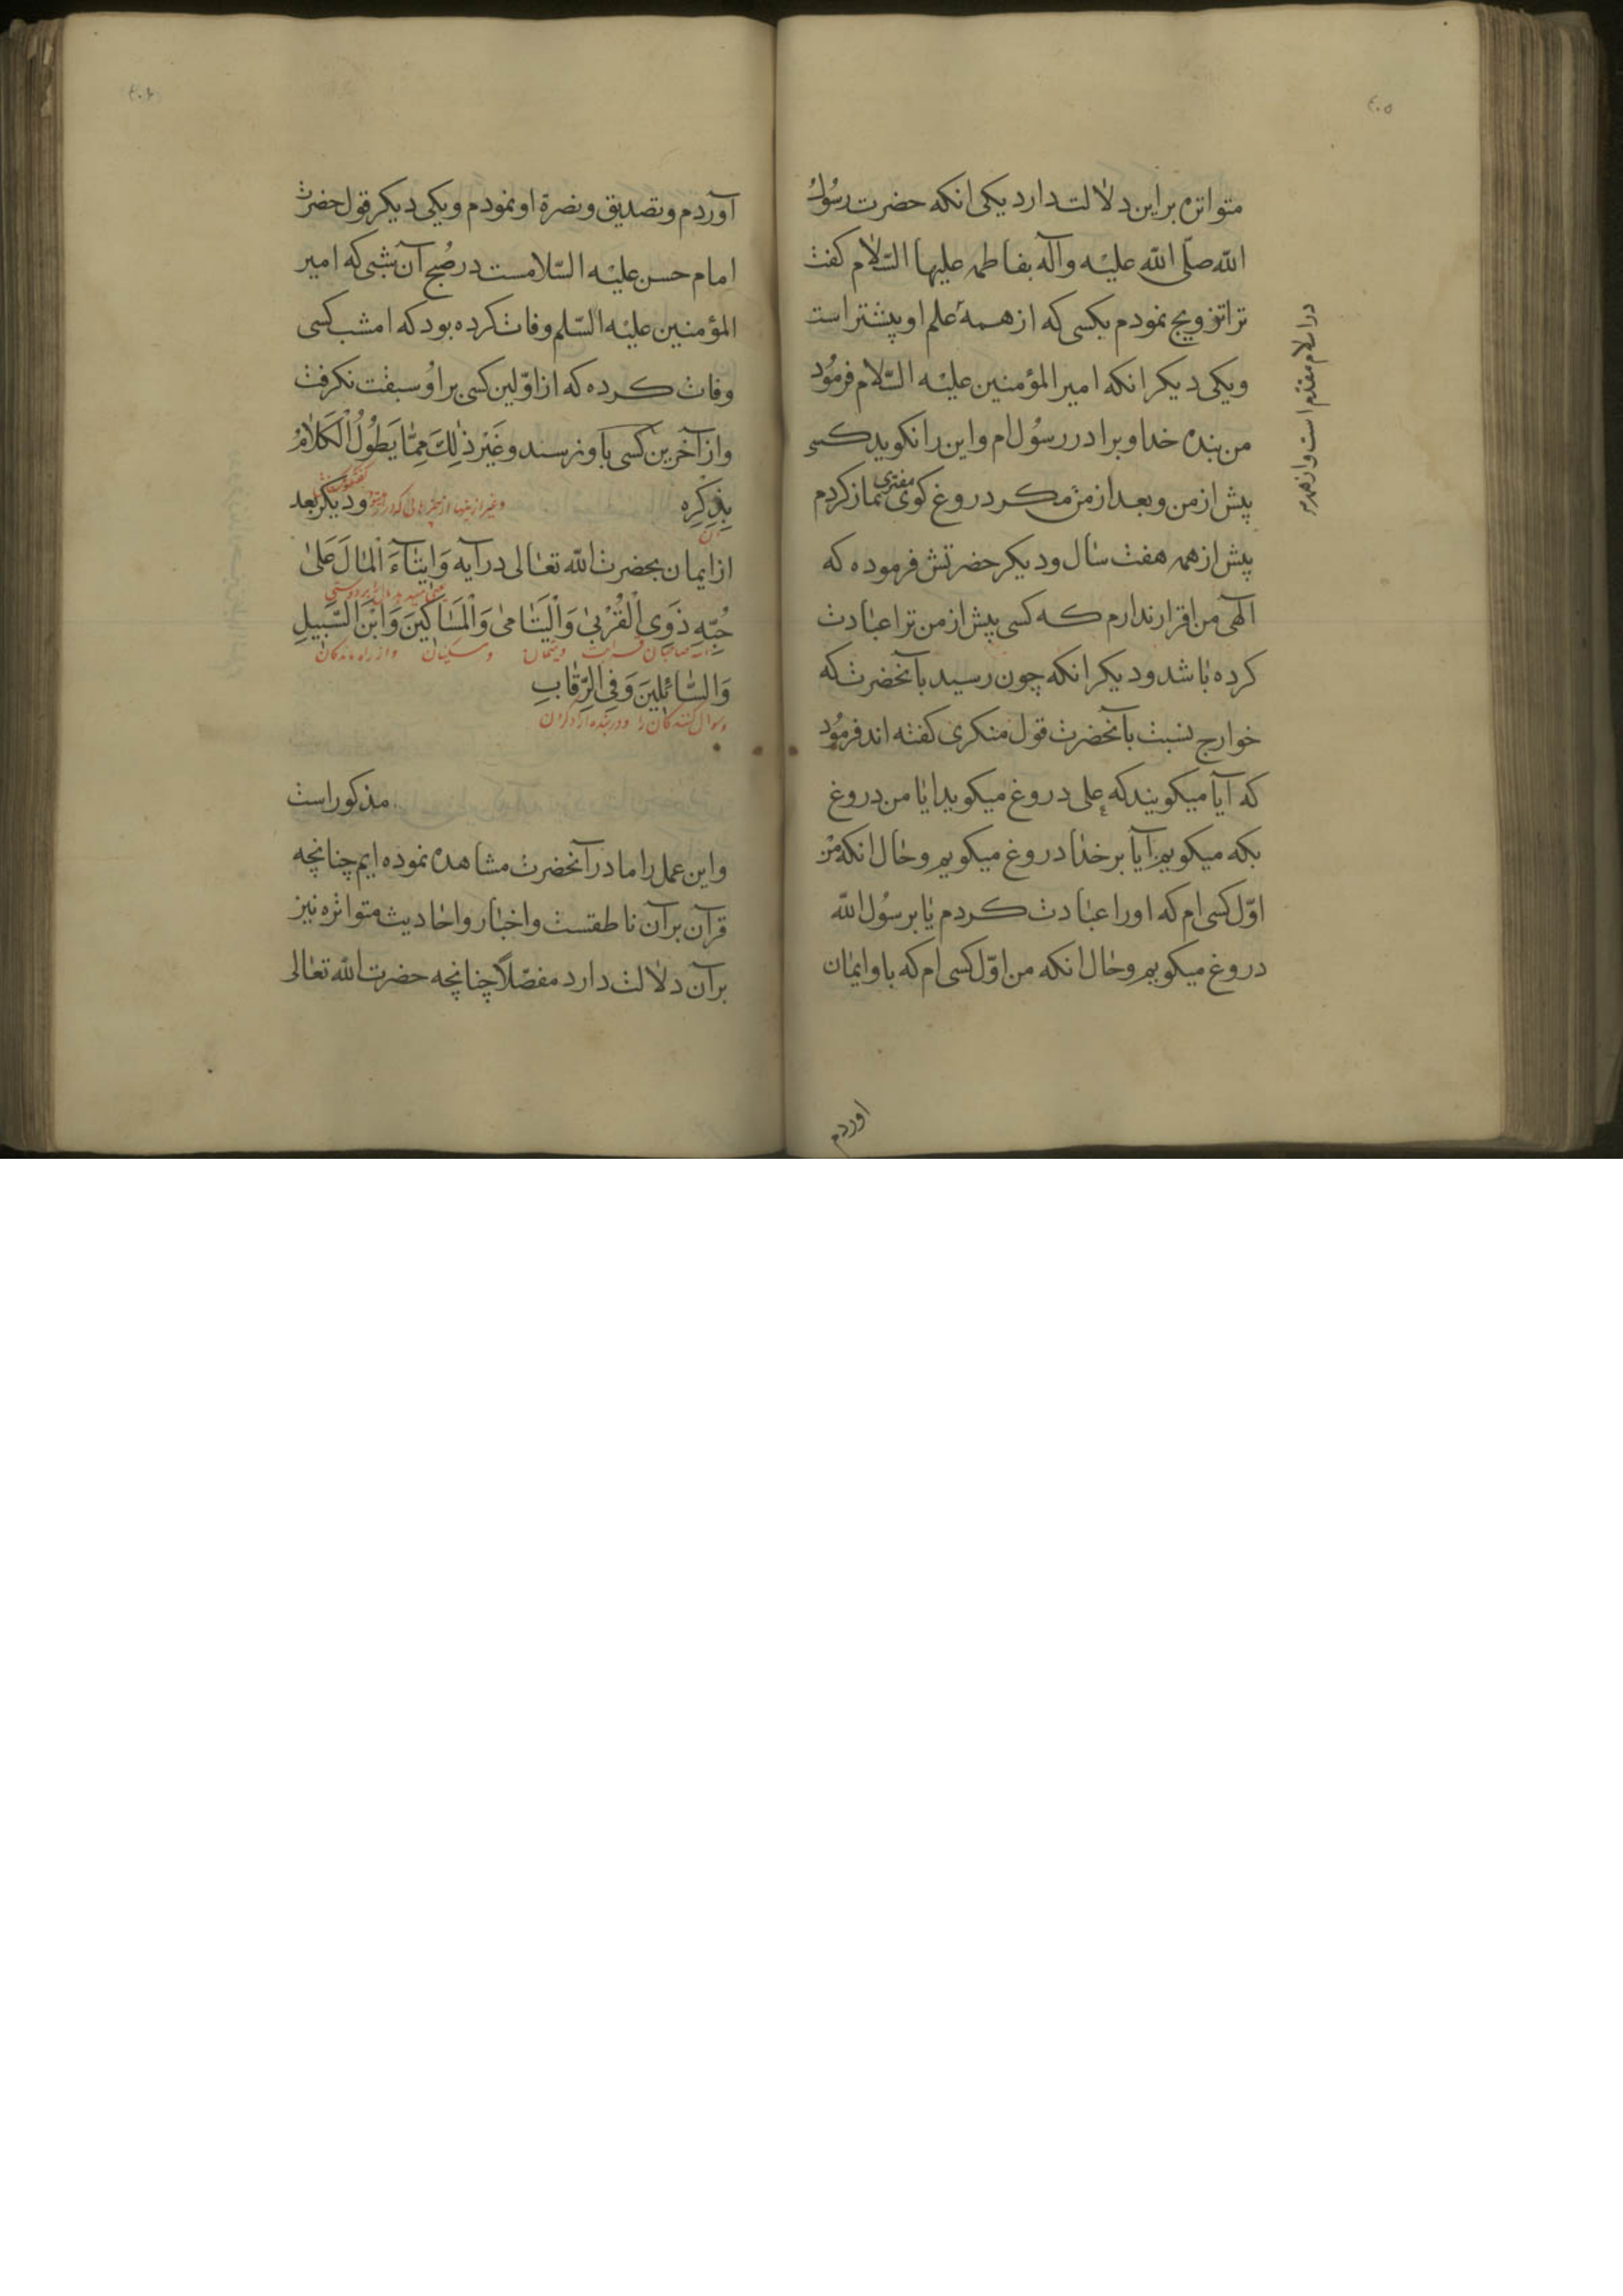 ٤٠٥
متواتره بر این دلالت دارد یکی انکه حضرت رسُولُ
اللّه صلّی اللّه علیْه وآله بفاطمه علیها السّلام کفت
ترا تزویج نمودم بکسی که از همۀ علم او پیشتر است
در اسلام مقدم است واز همه
ویکی دیکر انکه امیر المؤمنین علیْه السّلام فرمُود
من بنده خدا و برادر رسُول ام واین را نکوید کسی
پیش از من وبعد از من مکر دروغ کوی مفتری نماز کردم
پیش از همه هفت سٰال ودیکر حضرتش فرموده که
الٓهی من اقرار ندارم که کسی پیش از من ترا عبٰادت
کرده بٰاشد ودیکر انکه چون رسید بآنحضرت که
خوارج نسبت بآنحضرت قول منکری کفته اند فرمُود
که آیا میکویند که علی دروغ میکوید ایٰا من دروغ
بکه میکویم آیا بر خدٰا دروغ میکویم وحٰال انکه من
اوّل کسی ام که اورا عبٰادت کردم یٰا بر رسُول اللّه
دروغ میکویم وحٰال انکه من اوّل کسی ام که باو ایمٰان
اوردم
٤٠٦
آوردم وتصدیق ونصرة او نمودم ویکی دیکر قول حضرت
امام حسن علیْه السّلامست در صُبح آن شبی که امیر
المؤمنین علیْه السّلم وفات کرده بود که امشب کسی
وفات کرده که از اوّلین کسی بر اوُ سبقت نکرفت
واز آخرین کسی باو نرسند وغَیْر ذٰلِكَ مِمّٰا یَطُولُ الْکَلٰامُ
بِذِکْرِه وغیر از اینها از چیزهائی که دراز میشود ودیکر بعد
از ایمان بحضرت اللّه تعٰالی در آیه وَایتٰاۤءَ الْمٰالَ عَلیٰ
حُبِّهِ ذَوِی الْقُرْبیٰ وَالْیَتٰامیٰ وَالْمَسٰاکینَ وَابْنَ السَّبیلِ
صاحبان قرابت ویتیمان ومسکینان واز راه ماندکان
وَالسّٰائِلینَ وَفِی الرِّقٰابِ
وسوال کنندکان را ودر بنده آزاد کردن
مذکور است
واین عمل را ما در آنحضرت مشاهده نموده ایم چنانچه
قرآن بر آن ناطقست واخبٰار واحٰادیث متواتره نیز
بر آن دلٰالت دارد مفصّلاً چنانچه حضرت اللّه تعٰالی